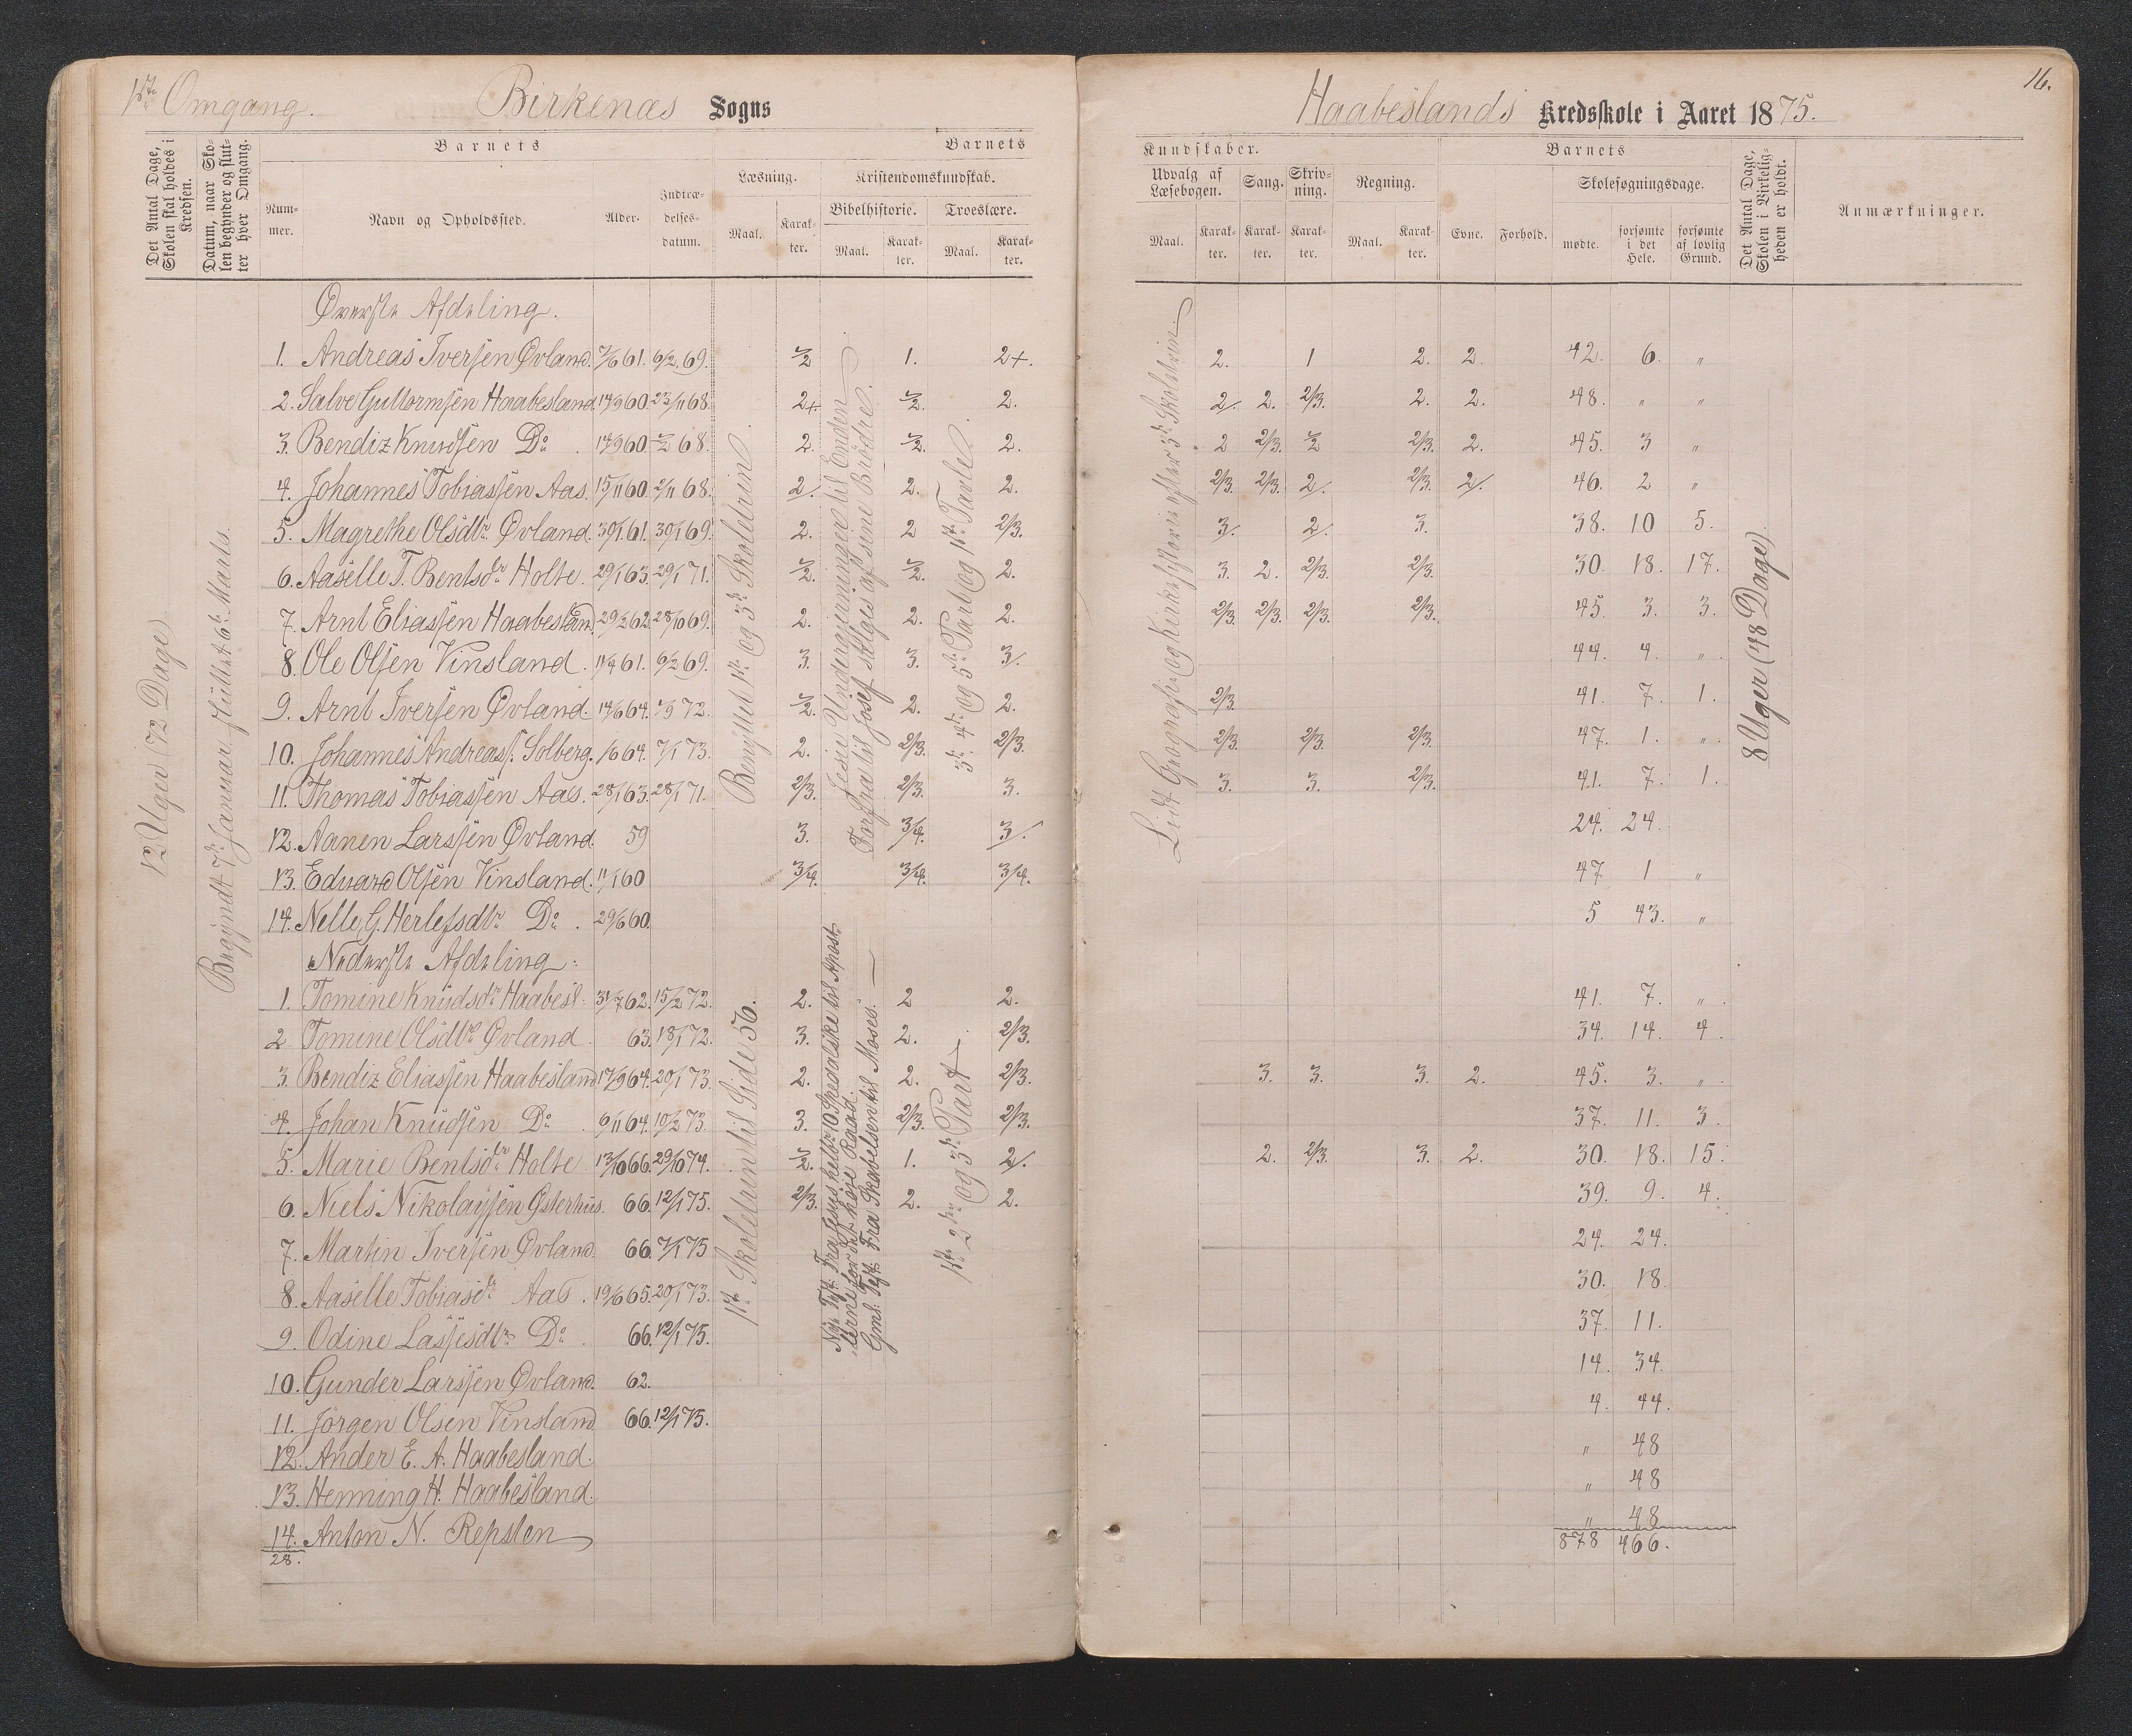 1ste Omgang. Birkenæs Sogns
Haabeslands Kredsskole i Aaret 1875. 16.
Det Antal Dage, Skolen skal holdes i Kredsen.
Datum, naar Skolen begynder og slutter hver Omgang.
Barnets
Barnets
Nummer.
Navn og Opholdssted.
Alder.
Indtrædelsesdatum.
Læsning.
Maal.
Karakter.
Kristendomskundskab.
Bibelhistorie.
Maal.
Karakter.
Troeslære.
Maal.
Karakter.
Kundskaber.
Udvalg af Læsebogen.
Maal.
Karakter.
Sang.
Karakter.
Skrivning.
Karakter.
Regning.
Maal.
Karakter.
Barnets
Evne.
Forhold.
Skolesøgningsdage.
mødte.
forsømte i det Hele.
forsømte af lovlig Grund.
Det Antal Dage, Skolen i Virkeligheden er holdt.
Anmærkninger.
12 Uger (72 Dage)
Begyndt 7de Januar, sluttet 6te Marts.
Benyttet 1ste og 3die Skoletrin.
Jesu Undergjerninger til Enden
Forfra til Josef sælges af sine Brødre.
3die 4de og 5te Part og 1ste Tavle.
Lidt Geografie og Kirkehistorie efter 3die Skoletrin.
8 Uger (48 Dage)
Øverste Afdeling.
1. Andreas Iversen Øvland. 7/6 61. 6/2 69. 1/2 1. 2+. 2. 1 2. 2. 42. 6. "
2. Salve Guttormsen Haabesland. 14/9 60. 23/11 68. 2+. 1/2. 2. 2/. 2. 2/3. 2. 2. 48. " "
3. Bendiz Knudsen Do. 17/9 60. 1/2 68. 2. 1/2. 2. 2 2/3. 1/2 2/3. 2. 45. 3 "
4. Johannes Tobiassen Aas. 15/11 60. 2/11 68. 2/. 2. 2. 2/3. 2/3. 2/. 2/3. 2/. 46. 2 "
5. Magrethe Olsdtr. Øvland. 30/1 61. 30/1 69. 2. 2 2/3. 3/. 2/. 3. 38. 10 5.
6. Aaselle T. Bentsdr Holte. 29/1 63. 29/1 71. 1/2. 1/2. 2. 3. 2. 2/3. 2/3. 30. 18. 17.
7. Arnt Eliassen Haabesland. 29/2 62. 28/10 69. 2. 2. 2. 2/3. 2/3. 2/3. 2/3. 45. 3. 3.
8. Ole Olsen Vinsland. 11/4 61. 6/2 69. 3. 3. 3/. 44. 4. "
9. Arnt Iversen Øvland. 14/6 64. 1/9 72. 1/2. 2. 2. 2/3. 41. 7. 1.
10. Johannes Andreass. Solberg. 1/6 64. 7/1 73. 2. 2/3. 2/3. 2/3. 2/3. 2/3. 47. 1. "
11. Thomas Tobiassen Aas. 28/1 63. 28/1 71. 2/3. 2/3. 3. 3. 3. 2/3. 41. 7. 1.
12. Aanen Larssen Øvland. 59 3. 3/4. 3/. 24. 24.
13. Edvard Olsen Vinsland. 11/1 60 3/4. 3/4. 3/4. 47 1 "
14. Nelle G. Herlefsdtr Do. 29/6 60. 5 43. "
Nederste Afdeling.
1. Tomine Knudsdr Haabesl. 31/7 62. 15/2 72. 2. 2 2. 41. 7. "
2. Tomine Olsdtr. Øvland 63. 18/1 72. 3. 2. 2/3. 34. 14. 4.
3. Bendiz Eliassen Haabesland 17/9 64. 20/1 73. 2. 2. 2/3. 3. 3. 3. 2. 45. 3. "
4. Johan Knudsen Do. 6/11 64. 10/2 73. 3. 2/3. 2/3. 37. 11. 3.
5. Marie Bentsdr Holte 13/10 66. 29/10 74. 1/2. 1. 2/. 2. 2/3. 3. 2. 30. 18. 15.
6. Niels Nikolaysen Østerhus. 66. 12/1 75. 2/3. 2. 2. 39. 9. 4.
7. Martin Iversen Øvland. 66. 7/1 75 24. 24.
8. Aaselle Tobiasdr Aas. 19/6 65. 20/1 73. 30. 18.
9. Odine Lassesdtr Do. 66. 12/1 75. 37. 11.
10. Gunder Larssen Øvland. 62. 14. 34.
11. Jørgen Olsen Vinsland 66. 12/1 75. 4. 44.
12. Ander E. A. Haabesland. " 48
13. Henning H. Haabesland. " 48
14. Anton N. Repsten " 48
28. 878 466.
1ste Skoletrin til Side 56.
Nye Test. Fra Jesus helbr. 10 Spedalske til Apostlerne for det høie Raad.
Gml. Test. Fra Skabelsen til Moses.
1ste 2den og 3die Part